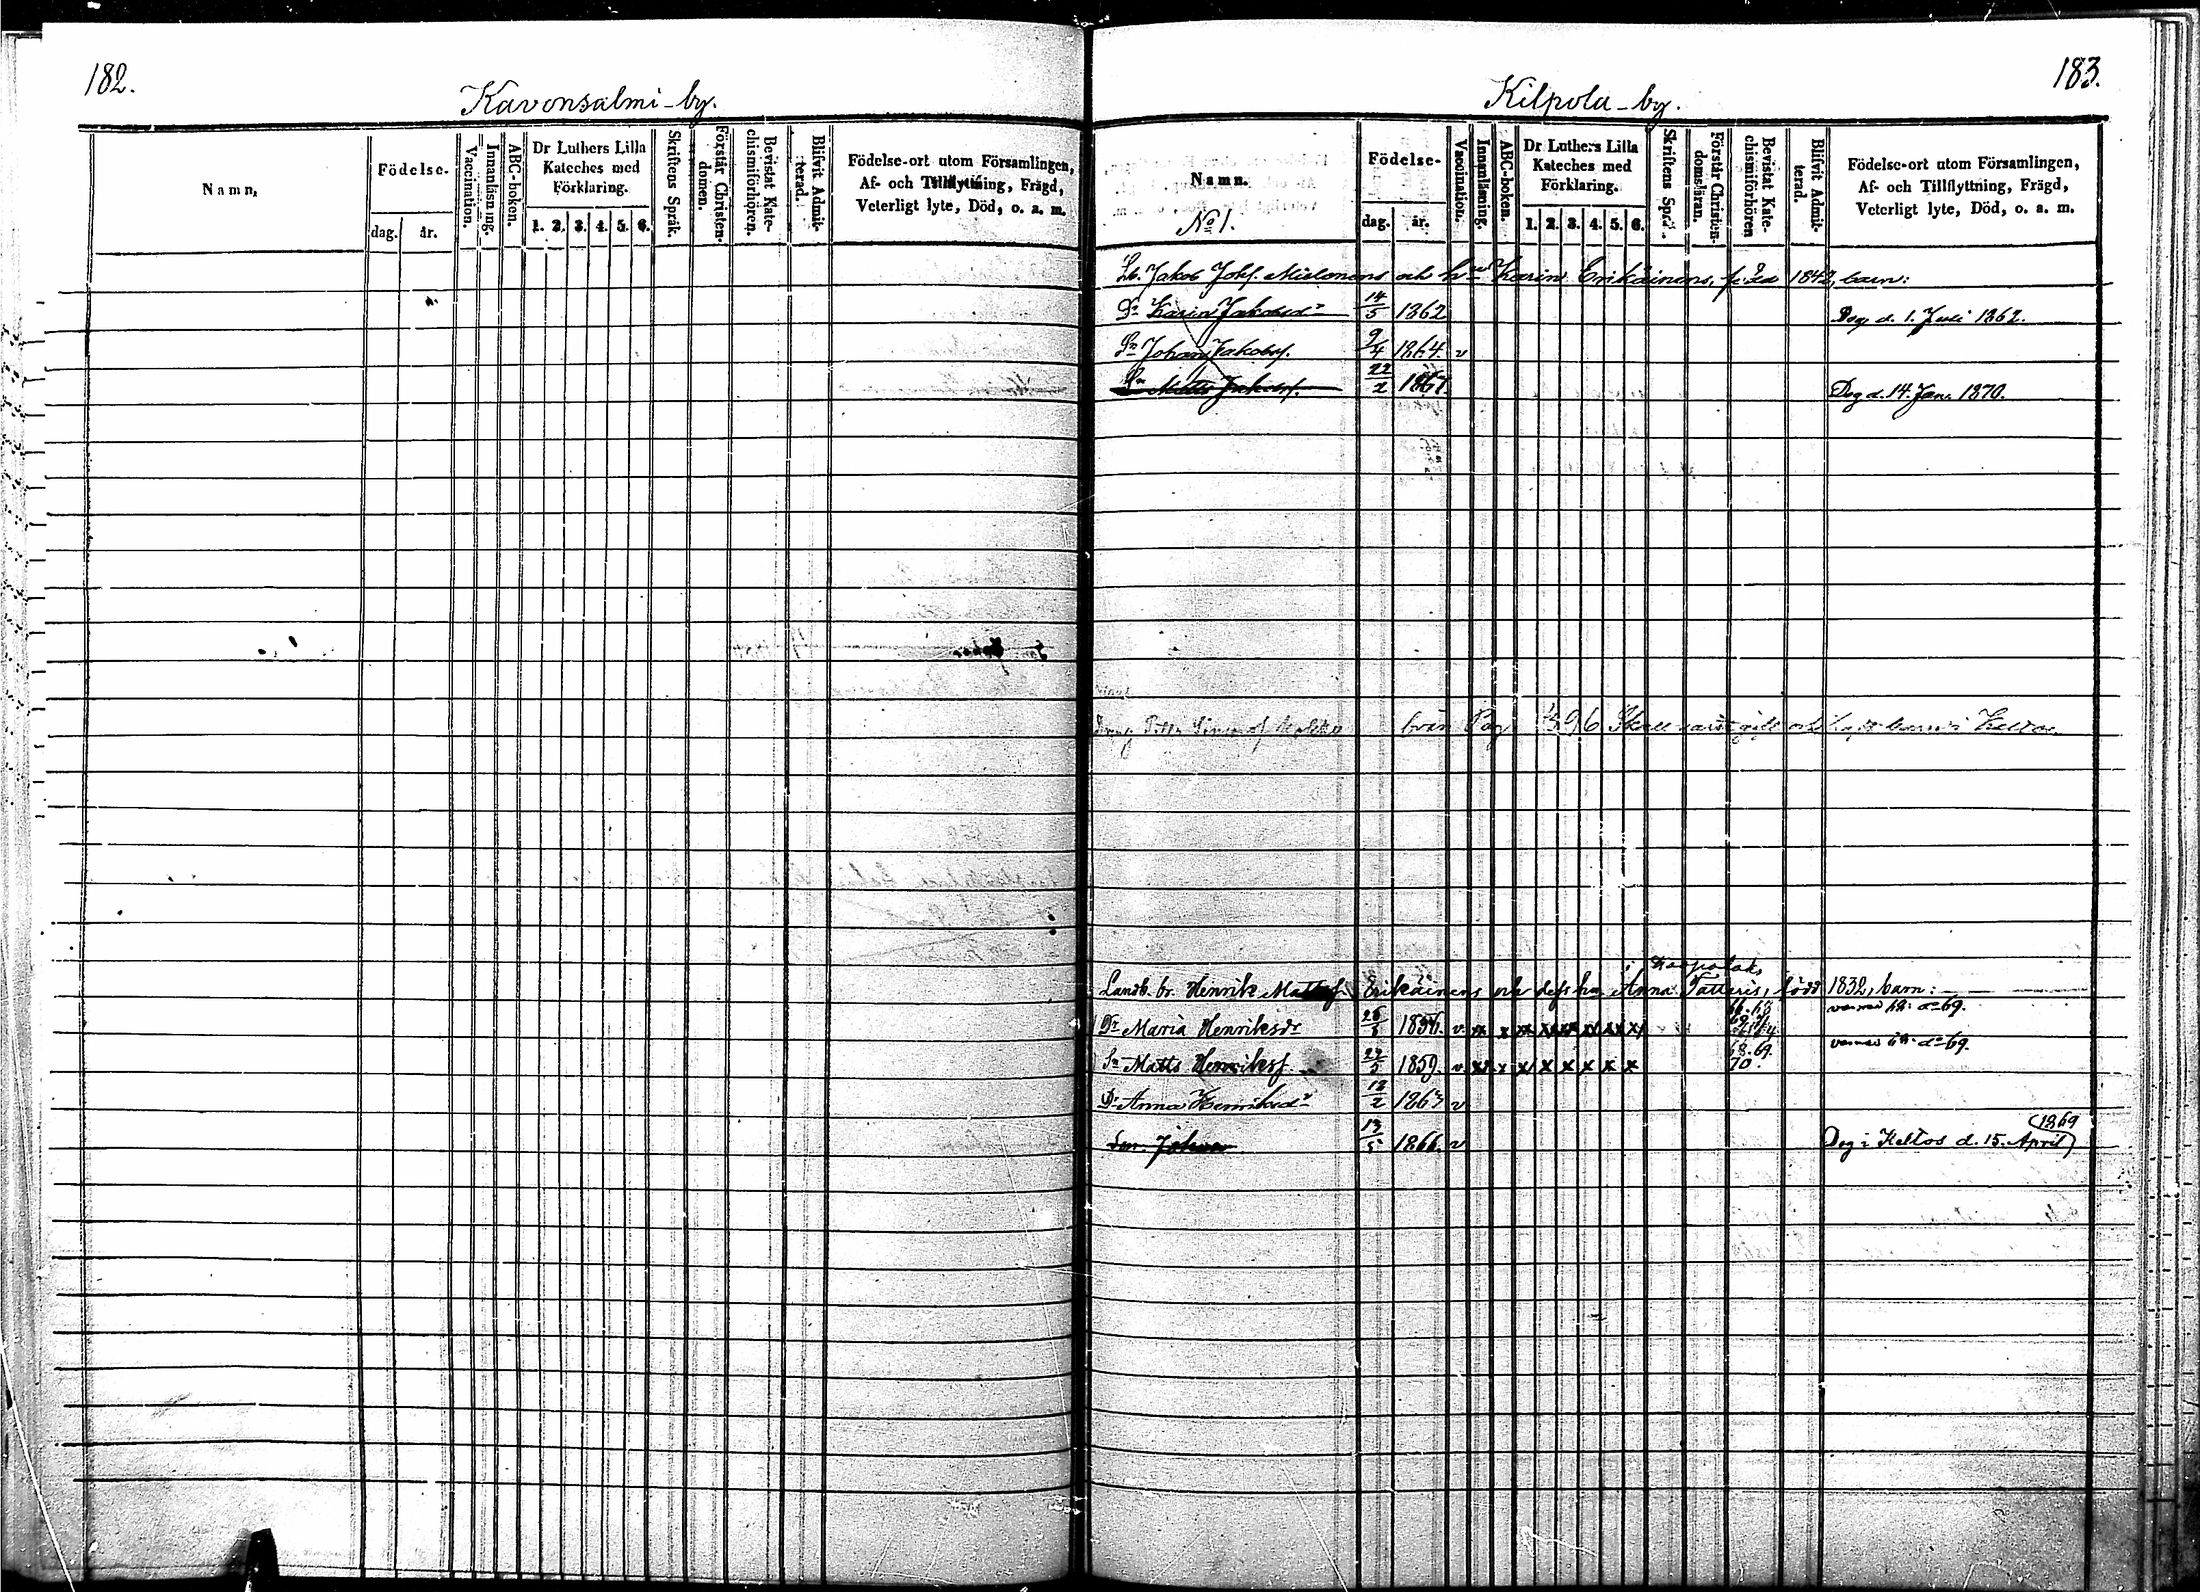 182.
Kavonsalmi-by.
Namn,
Födelse-
dag.
år.
Vaccination.
Innanläsning.
ABC-boken.
Dr Luthers Lilla
Kateches med
Förklaring.
1. 2. 3. 4. 5. 6.
Skriftens Språk.
Förstår Christen-
domen.
Bevistat Kate-
chismiförhören.
Blifvit Admit-
terad.
Födelse-ort utom Församlingen,
Af- och Tillflyttning, Frägd,
Veterligt lyte, Död, o. a. m.
183.
Kilpola-by.
Namn.
No 1.
Födelse-
dag.
år.
Vaccination.
Innanläsning.
ABC-boken.
Dr Luthers Lilla
Kateches med
Förklaring.
1. 2. 3. 4. 5. 6.
Skriftens Språ
Förstår Christen-
domsläran.
Bevistat Kate-
chismiförhören
Blifvit Admit-
terad.
Födelse-ort utom Församlingen,
Af- och Tillflyttning, Frägd,
Veterligt lyte, Död, o. a. m.
Jakob och Karin Erikäinens, född 1842, barn:
Dr Karin Jakobsdr 14/5 1862 Dog d. 1. Juli 1862.
Sn Johan Jakobsf. 9/4 1864. v
Sn Matts Jakobsf. 22/2 1867. Dog d. 14. Jan. 1870.
från Pag 396
Landb. br. Henrik Mattsf Erikäinens och defs hu Anna Tattaris, född 1832, barn:
Dr Maria Henriksdr 1856. v x x x x x x x x x
Sn Matts Henriksf. 1859. v x x x x x x x x x 68. 69. 70.
Dr Anna Henriksdr 12/2 1863 v
Son. Johan 13/5 1866. v Dog i Keltos d. 15. April 1869